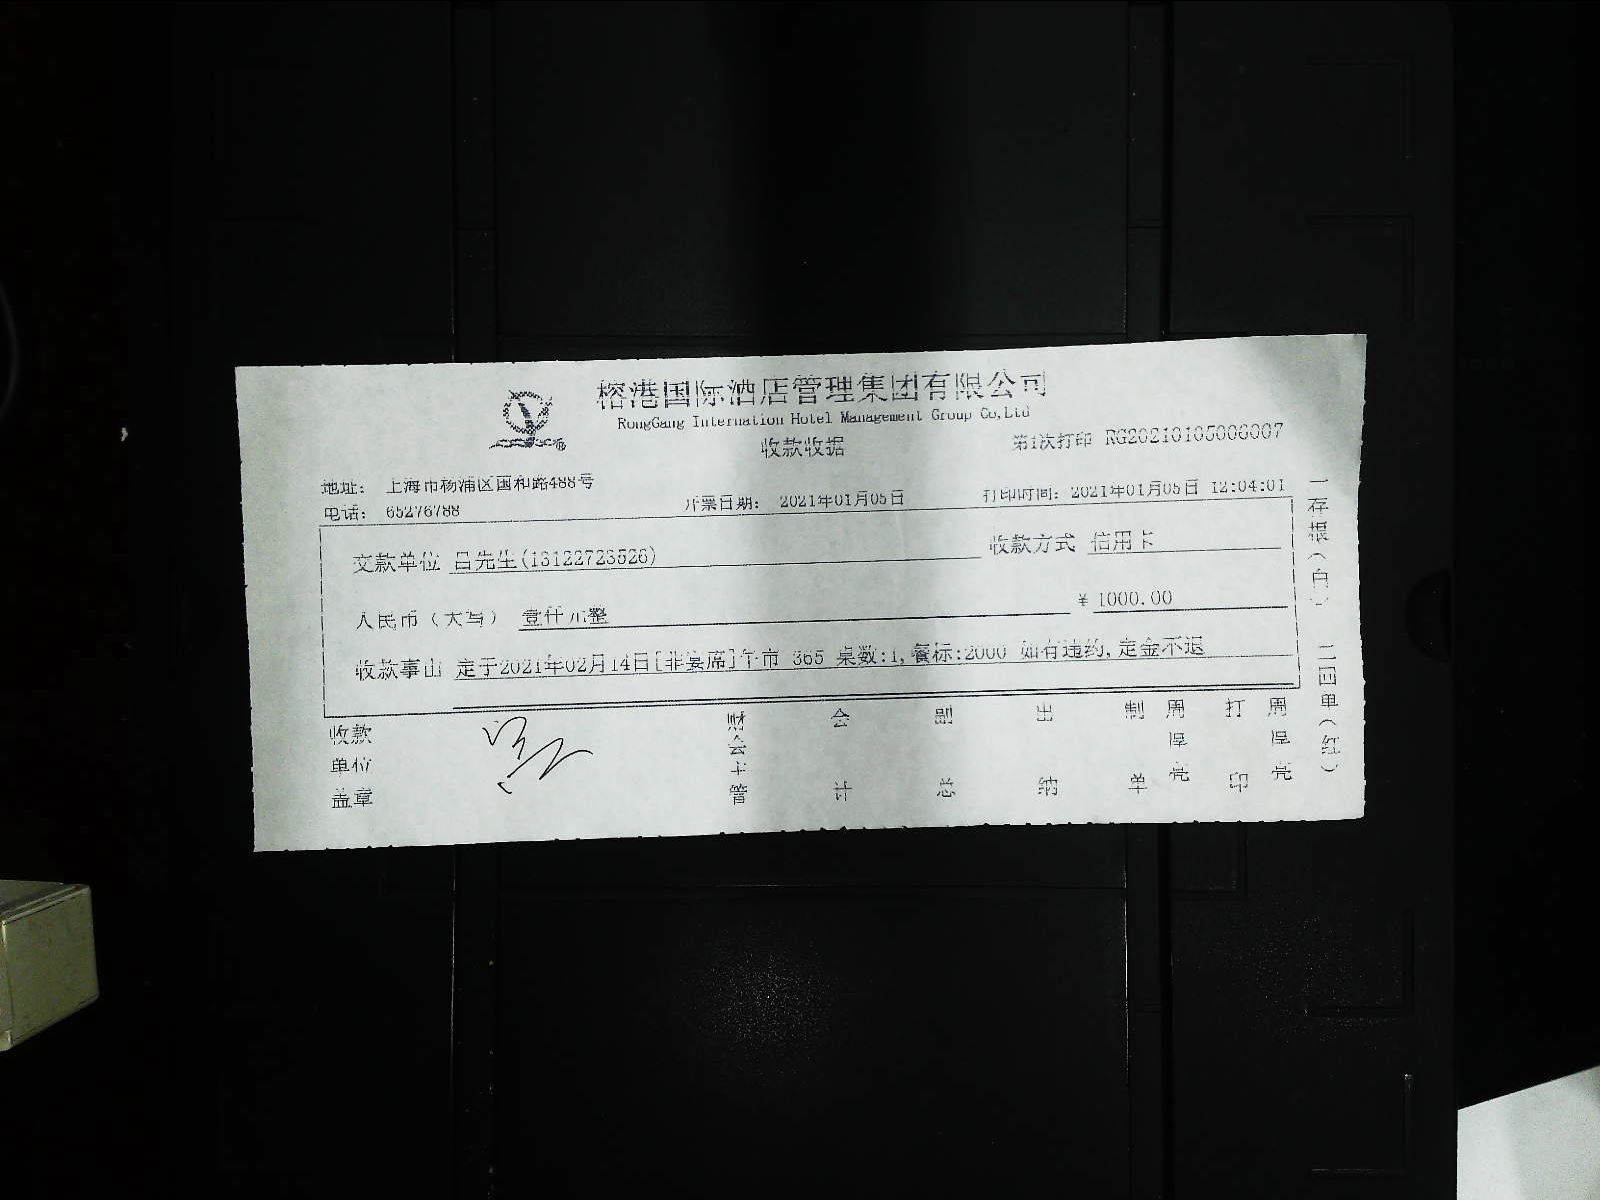 榕港国际酒店管理集团有限公司
RongGang Internation Hotel Management Group Co,Ltd
收款收据
第1次打印 RG20210105006007
地址： 上海市杨浦区国和路488号
电话： 65276788
开票日期： 2021年01月05日
打印时间：2021年01月05日 12:04:01
交款单位 吕先生(13122723526)
收款方式 信用卡
人民币（大写） 壹仟元整
￥ 1000.00
收款事由 定于2021年02月14日[非宴席]午市 365 桌数:1,餐标:2000 如有违约,定金不退
收款单位盖章
财会主管
会计
副总
出纳
制单 周厚亮
打印 周厚亮
一存根（白） 二回单（红）